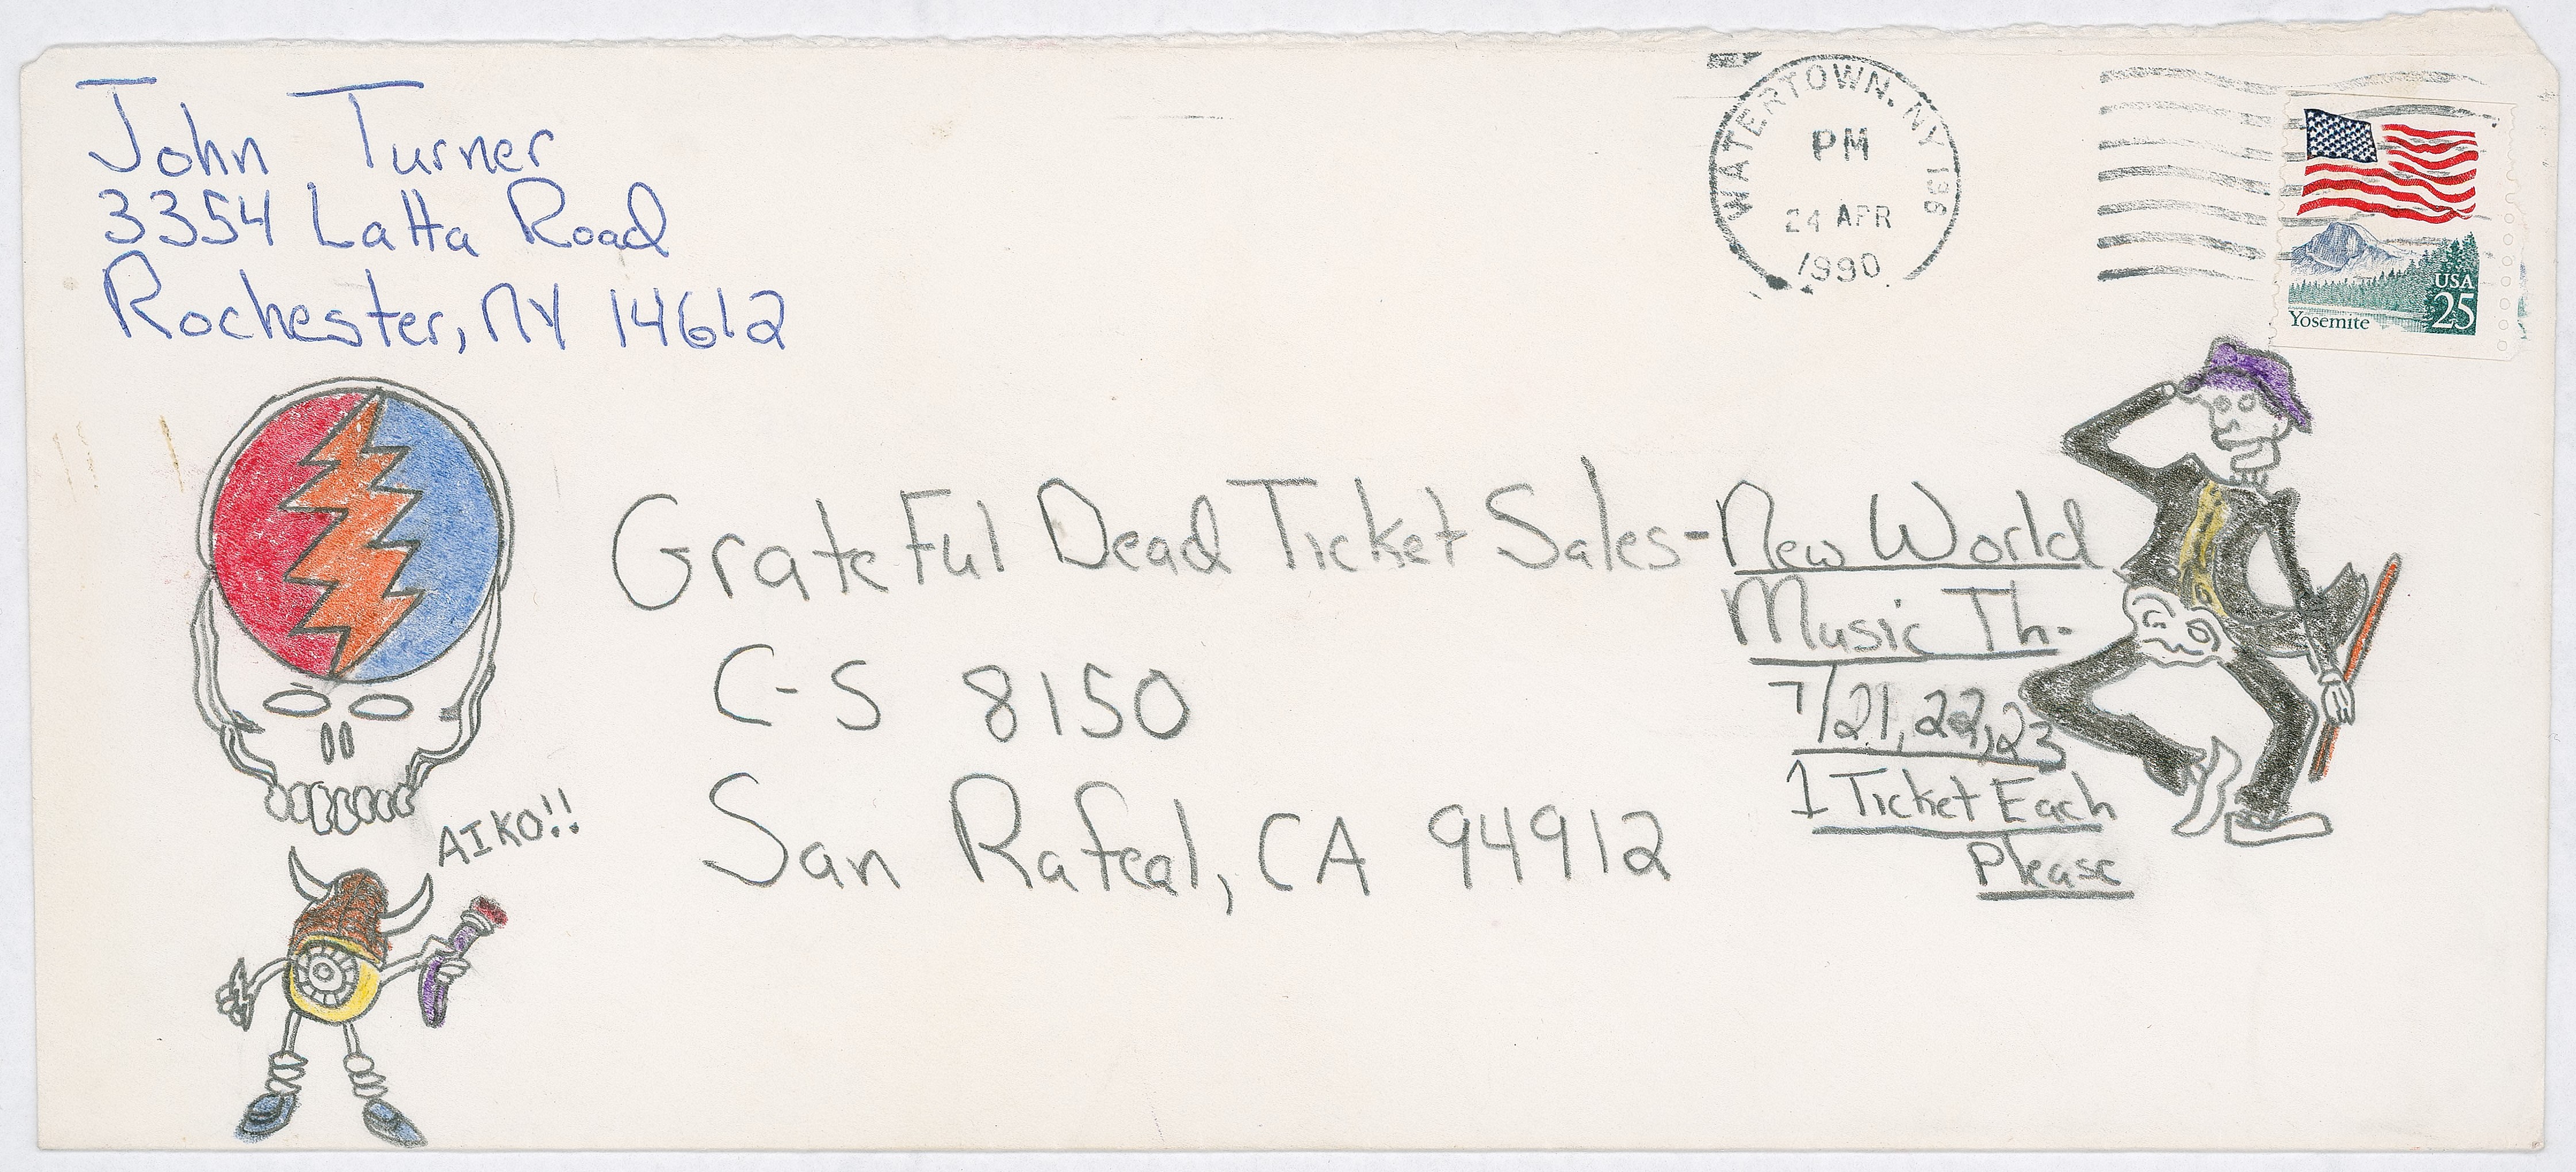 John Turner
3354 Latta Road
Rochester, NY 14612
WATERTOWN, NY 136
PM
24 APR
1990
USA
25
Yosemite
Grateful Dead Ticket Sales-New World
Music Th.
C-S 8150
7/21,22,23
1 Ticket Each
Please
San Rafeal, CA 94912
AIKO!!